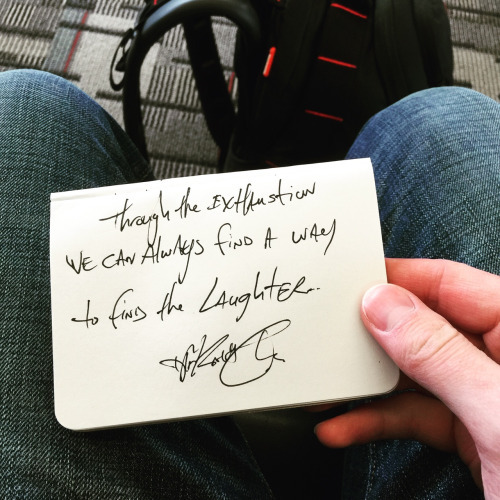 through the EXHAustion
WE CAN AlwAys find A wAy
to find the LAughtER..